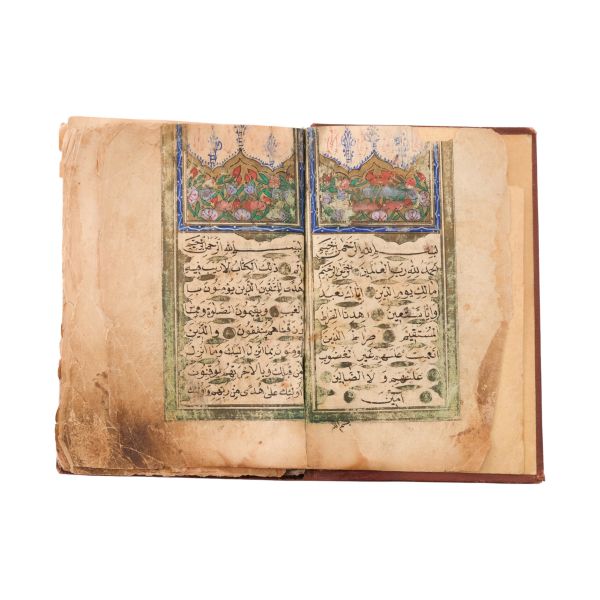 بسم الله الرحمن الرحيم
الحمد لله رب العالمين الرحمن الرحيم
مالك يوم الدين اياك نعبد
واياك نستعين اهدنا الصراط
المستقيم صراط الذين
انعمت عليهم غير المغضوب
عليهم ولا الضالين
آمين
بسم الله الرحمن الرحيم
الم ذلك الكتاب لا ريب فيه
هدى للمتقين الذين يومنون با
لغيب ويقيمون الصلوة ومما
رزقناهم ينفقون والذين
يومنون بما انزل اليك وما انزل
من قبلك وبالاخرة هم يوقنون
اولئك على هدى من ربهم واولئك